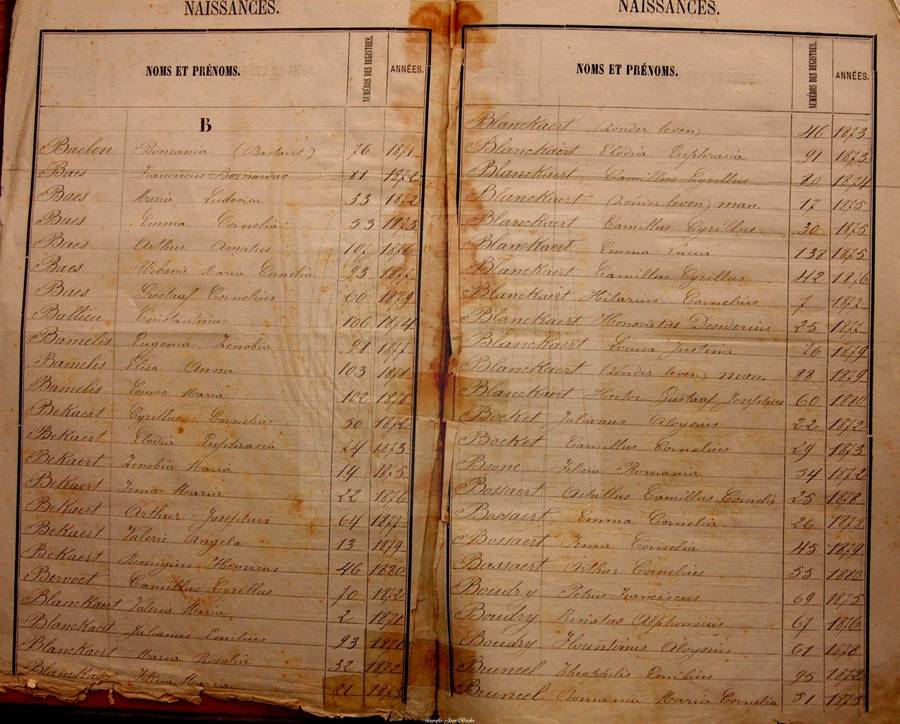 NAISSANCES.
NOMS ET PRÉNOMS. NUMÉROS DES REGISTRES. ANNÉES.
B
Baelen Romania (Bastaert) 76 1871
Baes Franciscus Bernardus 21 1872
Baes Maria Ludovica 33 1872
Baes Emma Cornelia 53 1875
Baes Arthur Amatus 107 1876
Baes Urbanie Maria Cornelia 93 1877
Baes Gustaaf Cornelius 60 1879
Ballieu Constantinus 106 1874
Bamelis Eugenia Zenobia 98 1877
Bamelis Elisa Anna 103 1878
Bamelis Louisa Maria 102 1878
Bekaert Cyrillus Cornelius 50 1872
Bekaert Elodia Euphrasia 24 1873
Bekaert Zenobia Maria 14 1875
Bekaert Irma Maria 22 1876
Bekaert Arthur Josephus 64 1877
Bekaert Valerie Angela 13 1879
Bekaert Remigius Henricus 46 1880
Bervoet Camillus Cyrillus 70 1872
Blanckaert Valeria Maria 2 1871
Blanckaert Julianus Emilius 93 1871
Blanckaert Maria Rosalia 32 1872
Blanckaert Maria 21 1873
NAISSANCES.
NOMS ET PRÉNOMS. NUMÉROS DES REGISTRES. ANNÉES.
Blanckaert (zonder leven) 46 1873
Blanckaert Elodia Euphrasia 91 1873
Blanckaert Camillus Cyrillus 80 1874
Blanckaert (zonder leven) man. 17 1875
Blanckaert Camillus Cyrillus 30 1875
Blanckaert Emma Lucia 138 1875
Blanckaert Camillus Cyrillus 42 1876
Blanckaert Hilarius Cornelius 7 1877
Blanckaert Honoratus Desiderius 25 1877
Blanckaert Louisa Justina 76 1879
Blanckaert (zonder leven) man. 88 1879
Blanckaert Hector Gustaaf Josephus 60 1880
Bocket Julianus Aloysius 22 1872
Bocket Camillus Cornelius 29 1873
Boone Felicia Romania 54 1872
Bossaert Achillus Camillus Cornelis 25 1878
Bossaert Emma Cornelia 26 1878
Bossaert Irma Cornelia 45 1879
Bossaert Arthur Cornelius 55 1880
Boudry Petrus Franciscus 69 1875
Boudry Renatus Alphonsius 67 1876
Boudry Florentinus Aloysius 61 1878
Bruneel Theophilis Emilius 95 1872
Bruneel Romania Maria Cornelia 31 1875